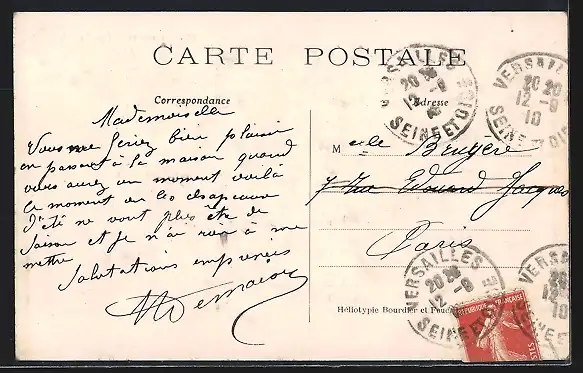 CARTE POSTALE
Correspondance
Adresse
Mademoiselle
Vous me feriez bien plaisir
en passant à la maison quand
vous aurez un moment voilà
ce moment ou les chapeaux
d'été ne vont plus être de
saison et je n'ai rien à me
mettre
Salutations empressées
Melle Bruyère
7 Rue Edouard Jacques
Paris
Héliotypie Bourdier et
VERSAILLES
20 20
12 -9
10
SEINE ET OISE
VERSAILLES
20 20
12 -9
10
SEINE ET OISE
VERSAILLES
20
12 -9
SEINE ET
VERSAILLES
20
12
10
REPUBLIQUE FRANÇAISE
POSTES